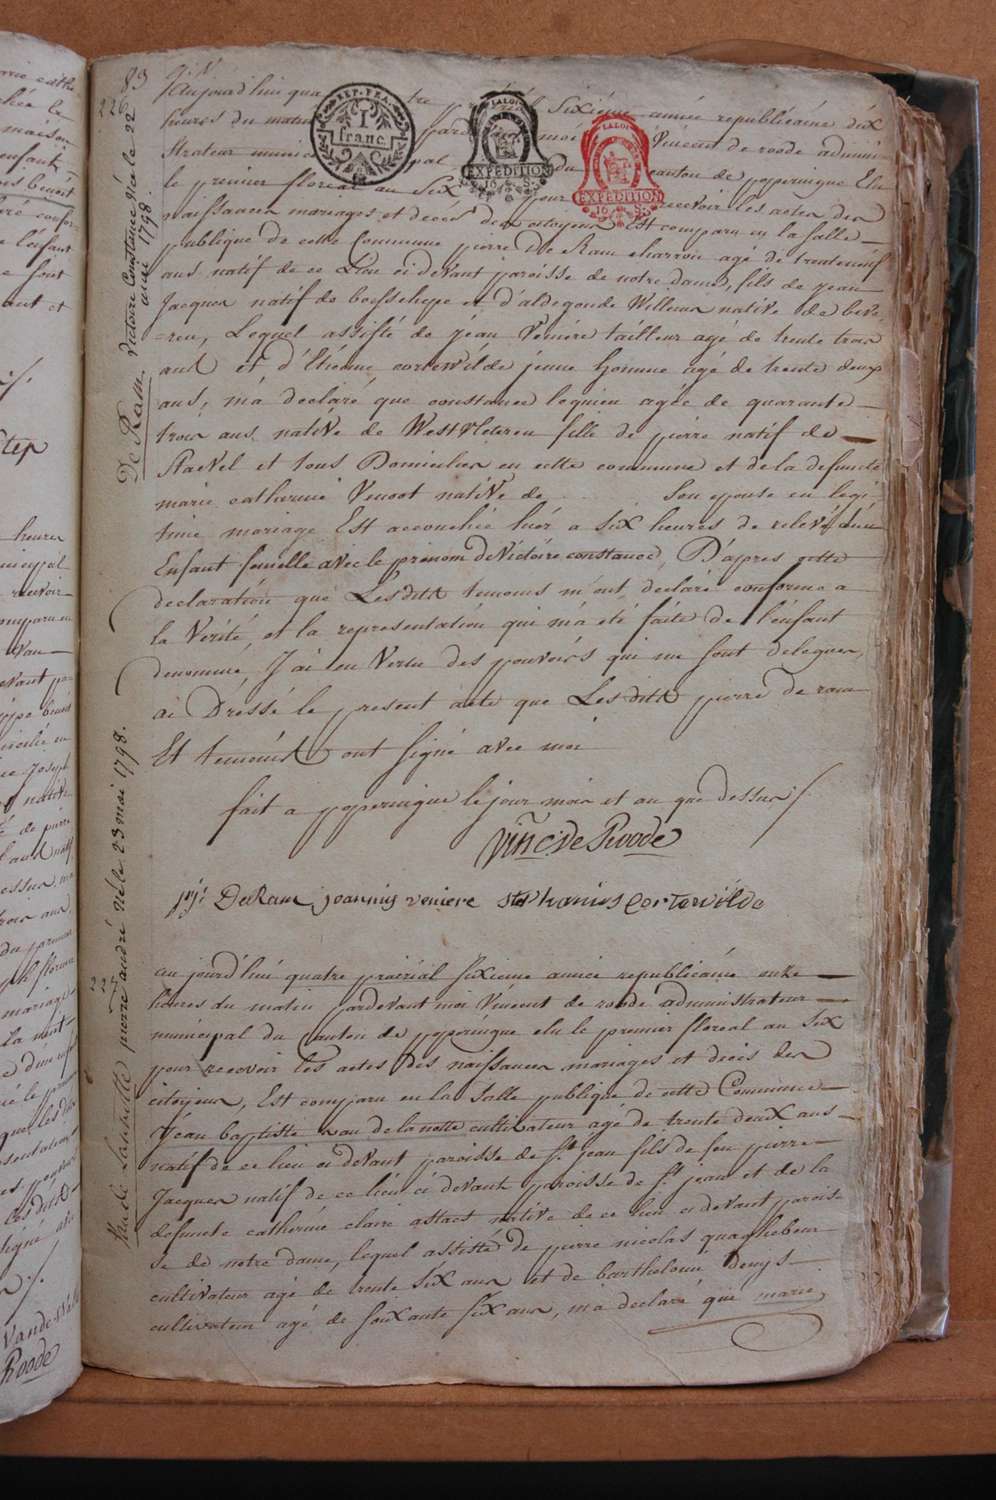 83
226
aujourd'hui quatre prairial Sixieme année républicaine dix
heures du matin pardevant moi Vincent de roode adminis
strateur municipal du canton de poperingue Elu
le premier floreal an Six pour recevoir les actes des
naissances mariages et décès des citoyens, Est comparu en la salle
publique de cette Commune pierre De Ram charron agé de trenteneuf
ans natif de ce Lieu ci devant paroisse de notre dame, fils de jean
Jacques natif de boesschepe et d'aldegonde Willems native de beve-
=ren, Lequel assisté de jean Veniere tailleur agé de trente trois
ans et d'Etienne cortewilde jeune homme agé de trente deux
ans, m'a declaré que constance lequieu agée de quarante
trois ans native de Westvleteren fille de pierre natif de
Stavel et tous Domiciliés en cette commune et de la defunte
marie catharine Venoot native de son epouse en legi-
time mariage Est accouchée hier a Six heures de relevé d'un
Enfant femelle avec le prénom de Victoire constance, D'apres cette
declaration que Lesdits temoins m'ont declaré conforme a
la Verité et la representation qui m'a été faite de l'enfant
denommé, J'ai en Vertu des pouvoirs qui me sont delegués,
ai Dressé le present acte que Lesdits pierre de ram
Et temoins ont signé avec moi
fait a poperingue le jour mois et an que dessus /
Vinc De Roode
pr: DeRam joannis veniere Stephanus Cortewilde
De Ram Victoire Constance Née le 22
mai 1798.
227
aujourd'hui quatre prairial Sixieme année republicaine onze
heures du matin pardevant moi Vincent de roode administrateur
municipal du Canton de poperingue elu le premier floreal an Six
pour recevoir les actes des naissances mariages et décès des
citoyens, Est comparu en la Salle publique de cette Commune
Jean baptiste vau de lanotte cultivateur agé de trente deux ans
natif de ce lieu ci devant paroisse de St. jean fils de feu pierre
Jacques natif de ce lieu ci devant paroisse de St. jean et de la
defunte catherine claire astaes native de ce lieu ci devant parois
se de notre dame, lequel assisté de pierre nicolas quaghebeur
cultivateur agé de trente Six ans et de barthelomi Denys
cultivateur agé de soixante Six ans, m'a declaré que marie
pierre andré Né le 23 mai 1798.